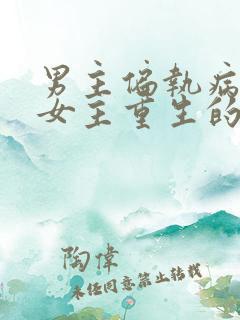 男主偏执病
女主重生的
陶偉
未经同意禁止转载